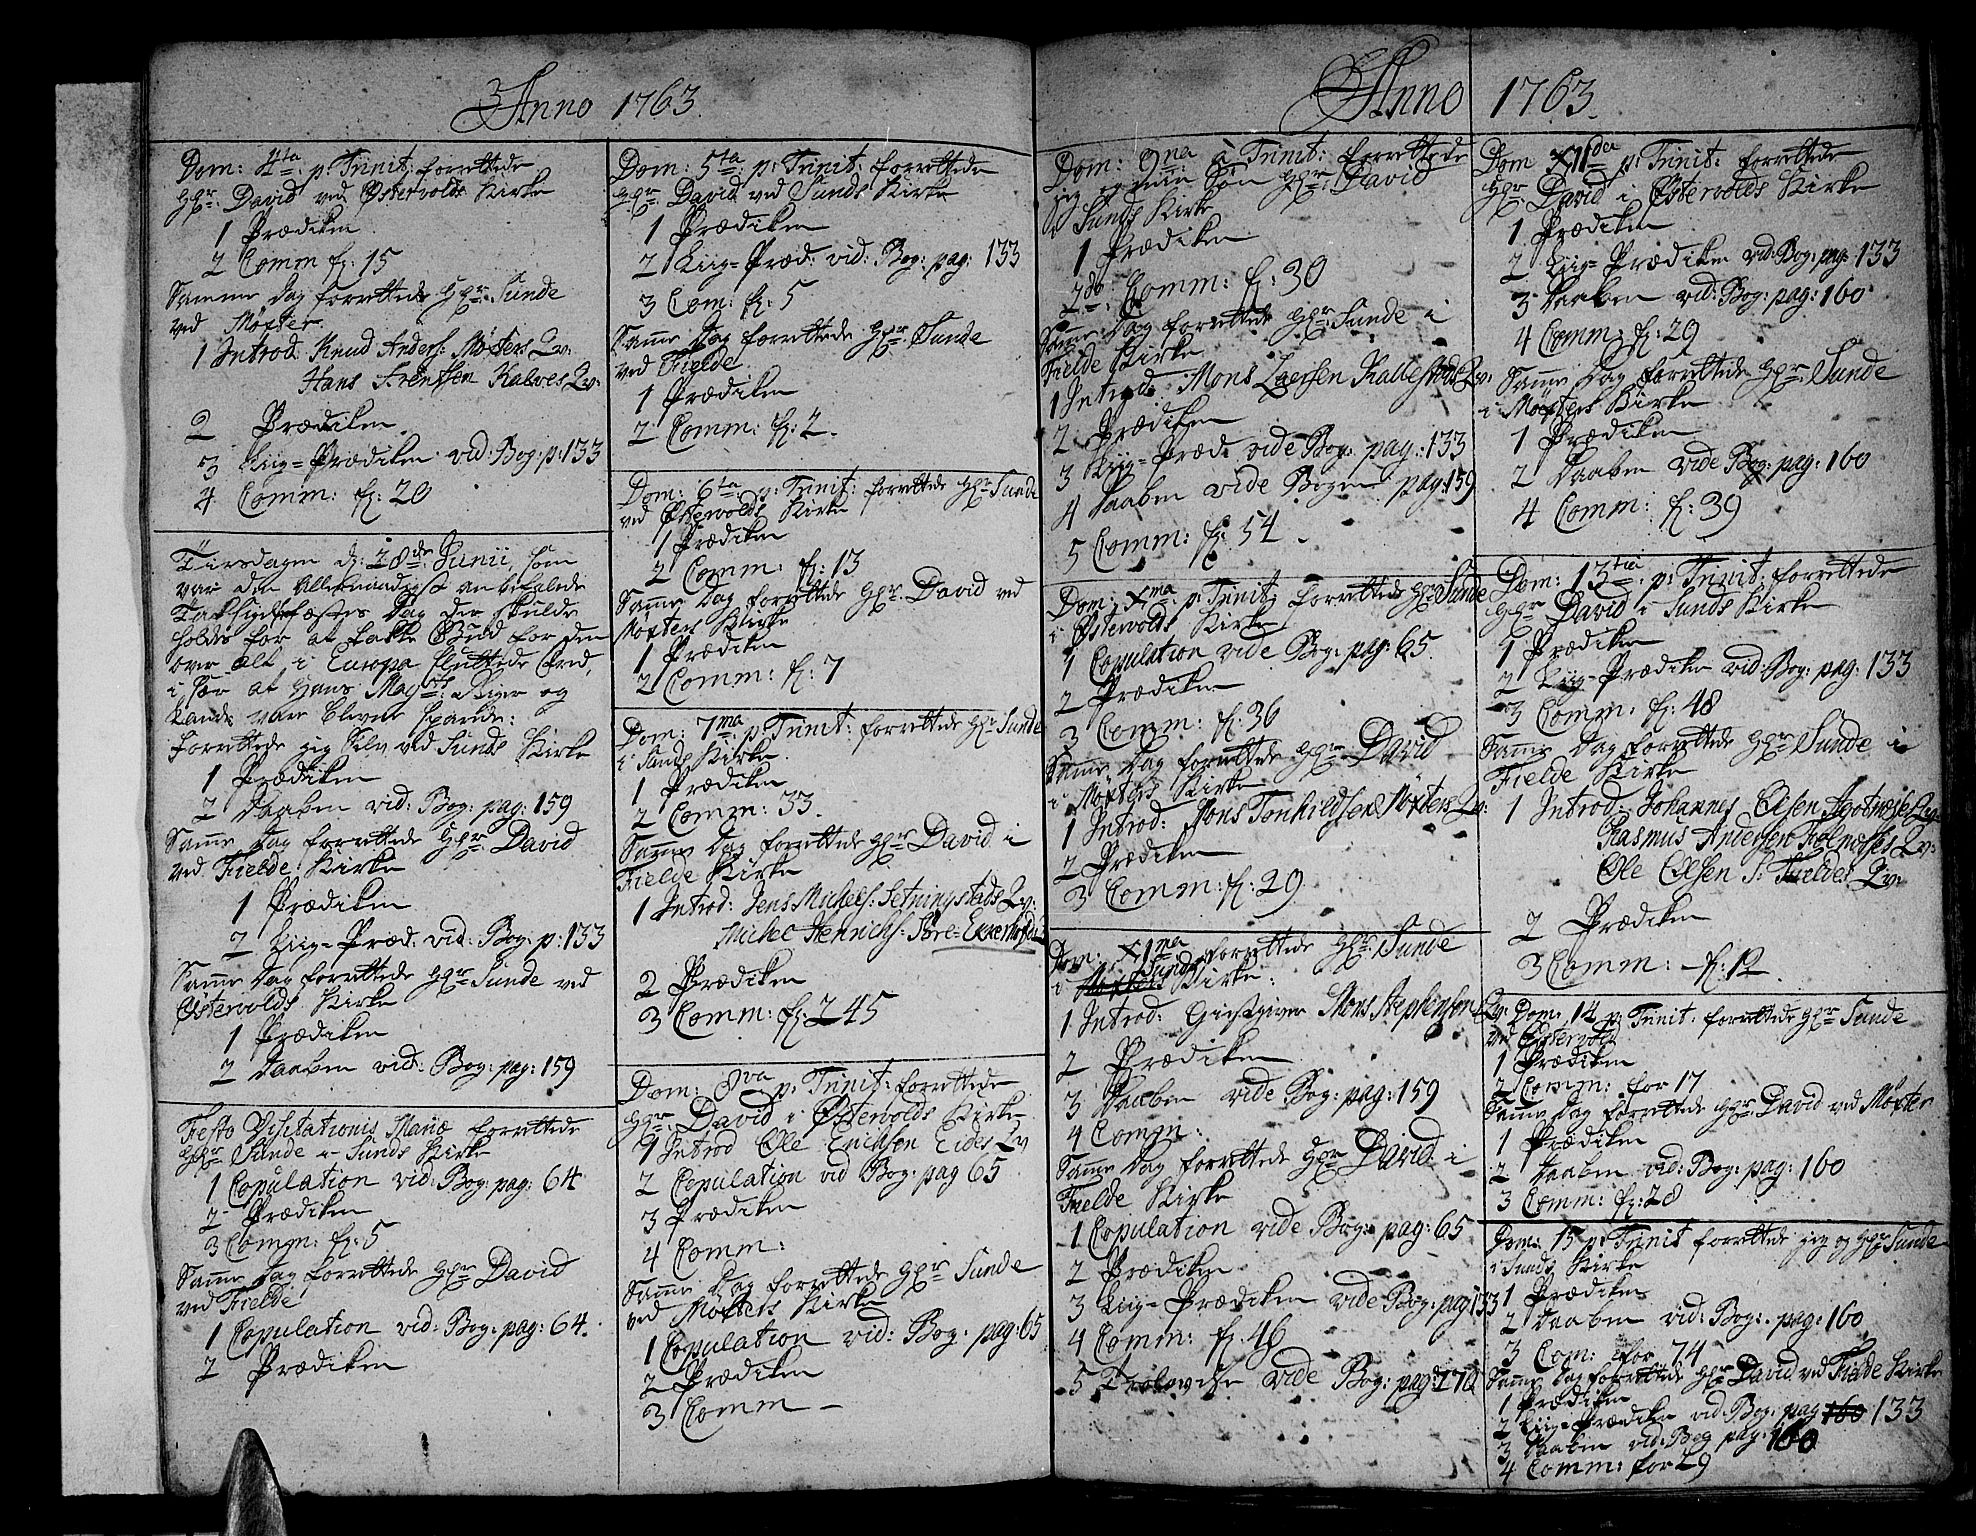 Anno 1763.
Dom: 4ta p: Trinit: forrettede
Hr: David ved Østervolds Kirke
1 Prædiken
2 Comm f: 15
Samme Dag forrettede Hr: Sunde
ved Møxter
1 Introd Knud Anders: Møxters Qv:
Hans Frenssen Kalves Qv:
2 Prædiken.
3 Liig-Prædiken vid: Bog: p: 133
4 Comm: f: 20
Tirsdagen d: 28de Junii, som
var den allernaadigst anbefalede
Taksigelsesfæstes Dag der skulde
holdes for at takke Gud for den
over alt i Europa sluttede Fred,
i sær at Hans Mayts: Riger og
Lande vare blevne sparede:
forrettede jeg selv ved Sunds Kirke
1 Prædiken
2 Daaben vid: Bog: pag: 159
Samme Dag forrettede Hr: David
ved Fielde Kirke
1 Prædiken
2 Liig-Præd: vid: Bog: p: 133
Samme Dag forrettede Hr: Sunde ved
Østervolds Kirke
1 Prædiken
2 Daaben vid: Bog: pag: 159
Festo Visitationis Mariæ forrettede
Hr: Sunde i Sunds Kirke
1 Copulation vid: Bog: pag: 64
2 Prædiken
3 Comm: f: 5
Samme Dag forrettede Hr: David
ved Fielde
1 Copulation vid: Bog: pag: 64.
2 Prædiken
Dom: 5ta: p: Trinit: forrettede
Hr: David ved Sunds Kirke
1 Prædiken
2 Liig-Præd: vid: Bog: pag: 133
3 Com: f: 5
Samme Dag forrettede Hr: Sunde
ved Fielde
1 Prædiken
2 Comm: f: 2.
Dom: 6ta p: Trinit: forrettede Hr: Sunde
ved Østervolds Kirke
1 Prædiken
2 Comm: f: 13
Samme Dag forrettede Hr: David ved
Møxters Kirke
1 Prædiken
2 Comm: f: 7
Dom: 7ma p Trinit: forrettede Hr: Sunde
i Sunds Kirke.
1 Prædiken
2 Comm: 33.
Samme Dag forrettede Hr David i
Fielde Kirke
1 Introd: Jens Michels: Qv:
Michel Henrichs:
2 Prædiken
3 Comm: f: 245
Dom: 8va p: Trinit: forrettede
Hr: David i Østervolds Kirke
1 Introd Ole Erichsen Eides Qv
2 Copulation vid Bog: pag 65
3 Prædiken
4 Comm:
Samme Dag forrettede Hr: Sunde
ved Møxters Kirke
1 Copulation vid: Bog: pag: 65
2 Prædiken
3 Comm –
Anno 1763.
Dom: 9na à Trinit: forrettede
jeg og min Søn Hr: David
i Sunds Kirke
1 Prædiken
2do Comm: f: 30
Samme Dag forrettede Hr: Sunde i
Fielde Kirke
1 Introd: Mons Laersen Qv:
2 Prædiken
3 Liig-Præd: vide Bog: pag: 133
4 Daaben vide Bogen pag: 159
5 Comm: f: 54
Dom: Xma: p: Trinit: forrettede Hr: Sunde
i Østervolds Kirke
1 Copulation vide Bog: pag: 65.
2 Prædiken
3 Comm: f: 36
Samme Dag forrettede Hr: David
i Møxters Kirke
1 Introd: Mons Tonhildsen Møxters Qv:
2 Prædiken
3 Comm: f: 29.
Dom: XIma forrettede Hr: Sunde
i Sunds Kirke.
1 Introd: Giestgiver Mons Qv:
2 Prædiken
3 Daaben vide Bog: pag: 159
4 Comm:
Samme Dag forrettede Hr David i
Fielde Kirke
1 Copulation vide Bog: pag: 65
2 Prædiken
3 Liig-Prædiken vide Bog: pag: 133
4 Comm: f: 46
5 Trolovelse vide Bog: pag:
Dom XIIda p: Trinit: forrettede
Hr: David i Østervolds Kirke
1 Prædiken
2 Liig-Prædiken vid: Bog: pag: 133
3 Daaben vid: Bog: pag: 160
4 Comm: f: 29
Samme Dag forrettede Hr: Sunde
i Møxters Kirke
1 Prædiken
2 Daaben vide Bog: pag: 160
4 Comm: f: 39
Dom: 13tia: p: Trinit: forrettede
Hr: David i Sunds Kirke
1 Prædiken
2 Liig-Prædiken vid: Bog: pag: 133
3 Comm: f: 48
Samme Dag forrettede Hr: Sunde i
Fielde Kirke
1 Introd: Johannes Olsen
Rasmus Andersen Qv:
Ole Olsen S: Fieldes Qv:
2 Prædiken
3 Comm: – f: 12
Dom: 14 p: Trinit: forrettede Hr: Sunde
ved Østervold
1 Prædiken
2 Comm: for 17
Samme Dag forrettede Hr: David ved Møxter
1 Prædiken
2 Daaben vid: Bog: pag: 160
3 Comm: f: 28
Dom: 15 p: Trinit forrettede jeg og Hr: Sunde
i Sunds Kirke
1 Prædiken
2 Daaben vid: Bog: pag: 160
3 Com: for 74
Samme Dag forrettede Hr David ved Fielde Kirke
1 Prædiken
2 Liig-Prædiken vid: Bog: pag 160 133
3 Daaben vid: Bog pag: 160
4 Comm: for 29